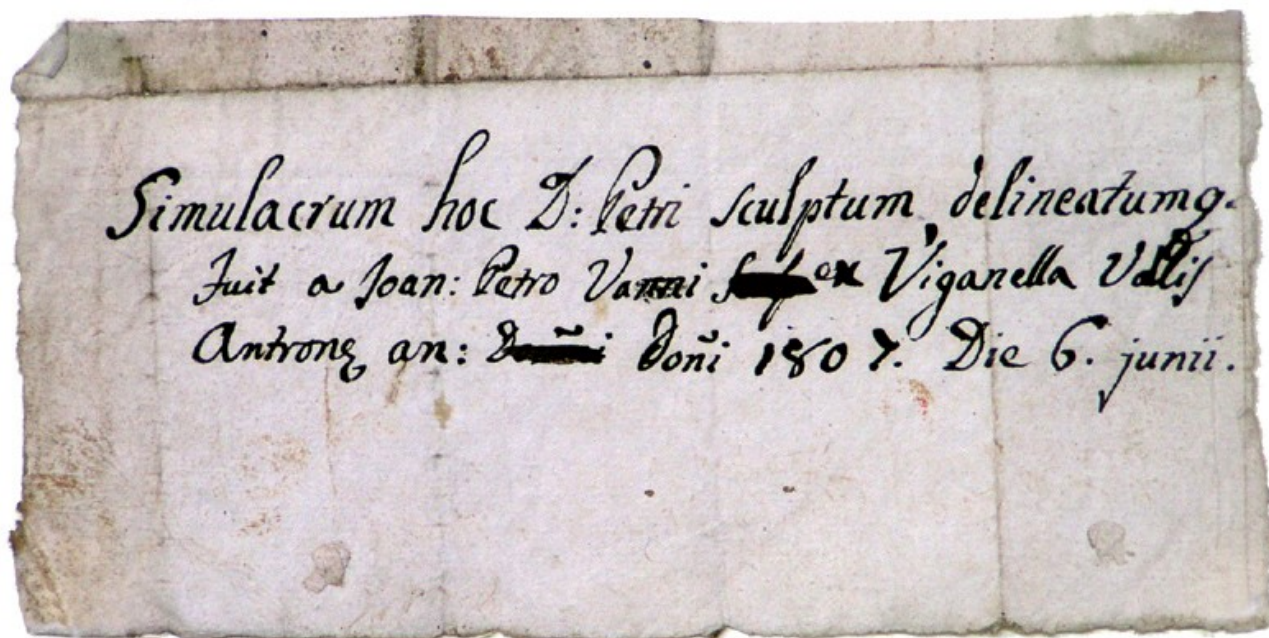 Simulacrum hoc D: Petri sculptum, delineatumq.
Fuit a Joan: Petro Vanni ex Viganella Vallis
Antronę an: Doñi 1807. Die 6. junii.